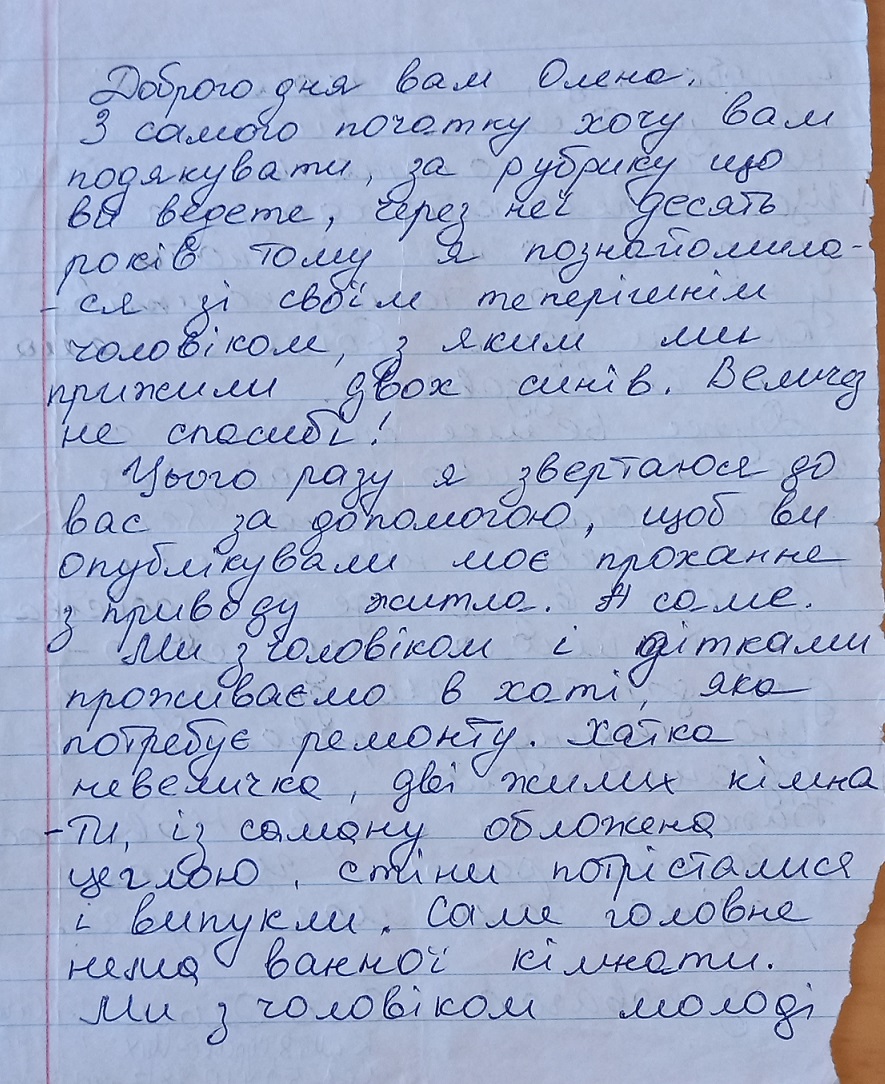 Доброго дня вам Олена.
З самого початку хочу вам
подякувати, за рубрику що
ви ведете, через неї десять
років тому я познайомила-
-ся зі своїм теперішнім
чоловіком, з яким ми
прижили двох синів. Величез
не спасибі!
Цього разу я звертаюся до
вас за допомогою, щоб ви
опублікували моє прохання
з приводу житла. А саме.
Ми з чоловіком і дітками
проживаємо в хаті, яка
потребує ремонту. Хатка
невеличка, дві жилих кімна
-ти, із саману обложена
цеглою, стіни потрісталися
і випукли. Саме головне
нема ванної кімнати.
Ми з чоловіком молоді